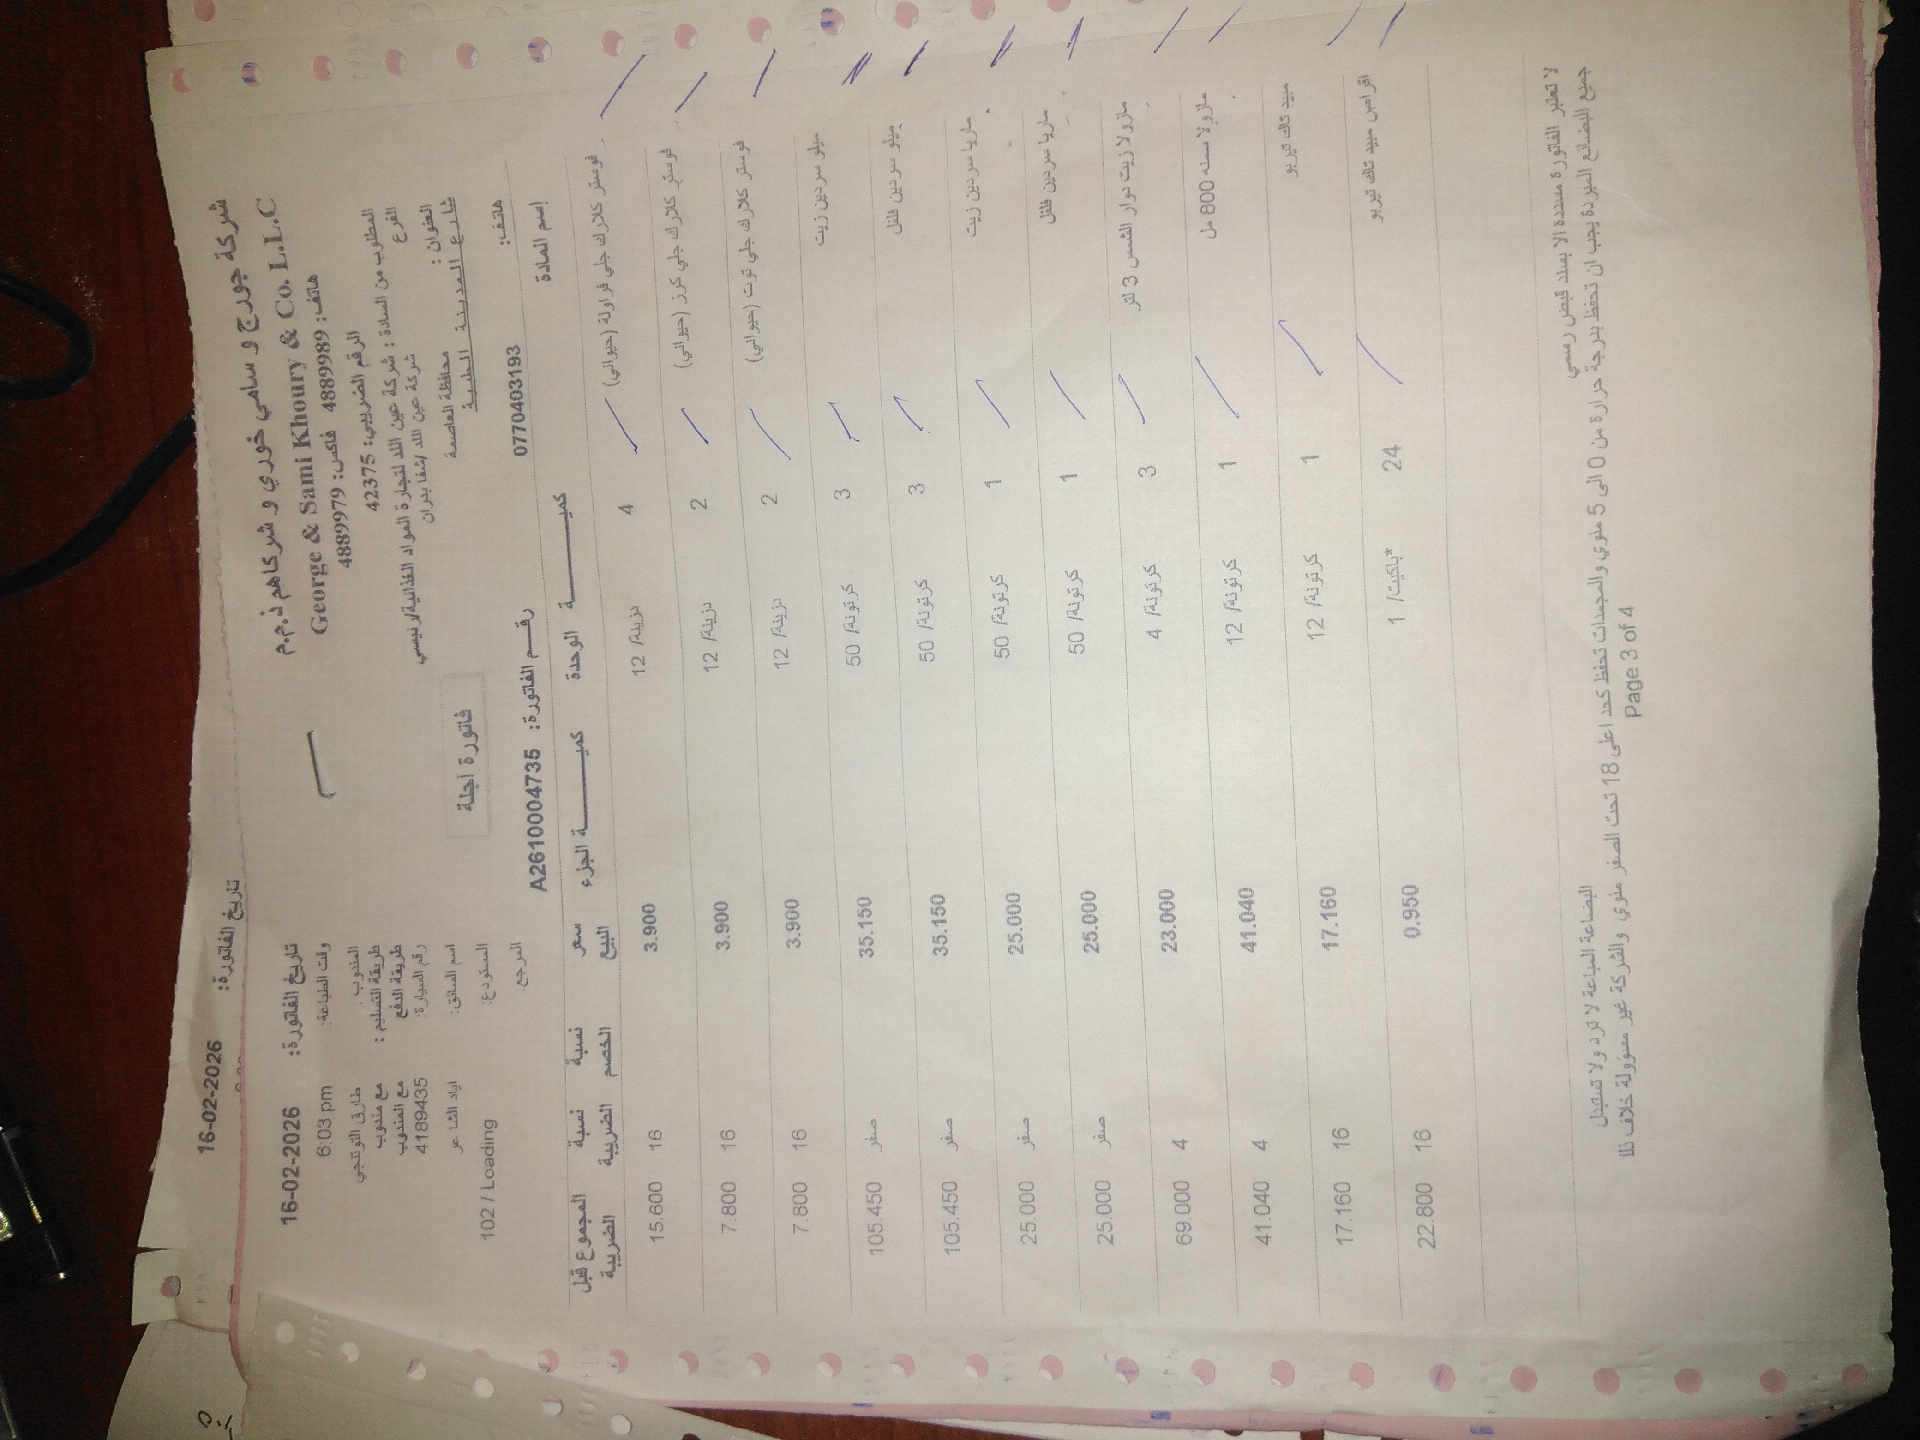 16-02-2026 تاريخ الفاتورة:
شركة جورج و سامي خوري و شركاهم ذ.م.م
George & Sami Khoury & Co. L.L.C
هاتف: 4889989 فاكس: 4889979
الرقم الضريبي: 42375
المطلوب من السادة : شركة عين اللد لتجارة المواد الغذائية/رئيسي
الفرع شركة عين اللد /شفا بدران
العنوان : محافظة العاصمة
شارع المدينة الطبية
هاتف: 0770403193
فاتورة اجلة
رقم الفاتورة: A2610004735
تاريخ الفاتورة: 16-02-2026
وقت الطباعة: 6:03 pm
المندوب : طارق التوتنجي
طريقة التسليم : مع مندوب
طريقة الدفع مع المندوب
رقم السيارة: 4189435
اسم السائق: اياد الشاعر
المستودع: 102 / Loading
المرجع:
إسم المادة كميـة الوحدة كميـة الجزء سعر البيع نسبة الخصم نسبة الضريبة المجموع قبل الضريبة
فوستر كلارك جلي فراولة (حيواني) 4 دزينة/ 12 3.900 16 15.600
فوستر كلارك جلي كرز (حيواني) 2 دزينة/ 12 3.900 16 7.800
فوستر كلارك جلي توت (حيواني) 2 دزينة/ 12 3.900 16 7.800
ميلو سردين زيت 3 كرتونة/ 50 35.150 صفر 105.450
ميلو سردين فلفل 3 كرتونة/ 50 35.150 صفر 105.450
ماريا سردين زيت 1 كرتونة/ 50 25.000 صفر 25.000
ماريا سردين فلفل 1 كرتونة/ 50 25.000 صفر 25.000
مازولا زيت دوار الشمس 3 لتر 3 كرتونة/ 4 23.000 4 69.000
مازولا سمنه 800 مل 1 كرتونة/ 12 41.040 4 41.040
مبيد تاك فيربو 1 كرتونة/ 12 17.160 16 17.160
اقراص مبيد تاك فيربو 24 باكيت/ 1* 0.950 16 22.800
لا تعتبر الفاتورة مسددة الا بسند قبض رسمي البضاعة المباعة لا ترد ولا تستبدل
جميع البضائع المبردة يجب ان تحفظ بدرجة حرارة من 0 الى 5 مئوي والمجمدات تحفظ كحد اعلى 18 تحت الصفر مئوي والشركة غير مسؤولة خلاف ذلك
Page 3 of 4